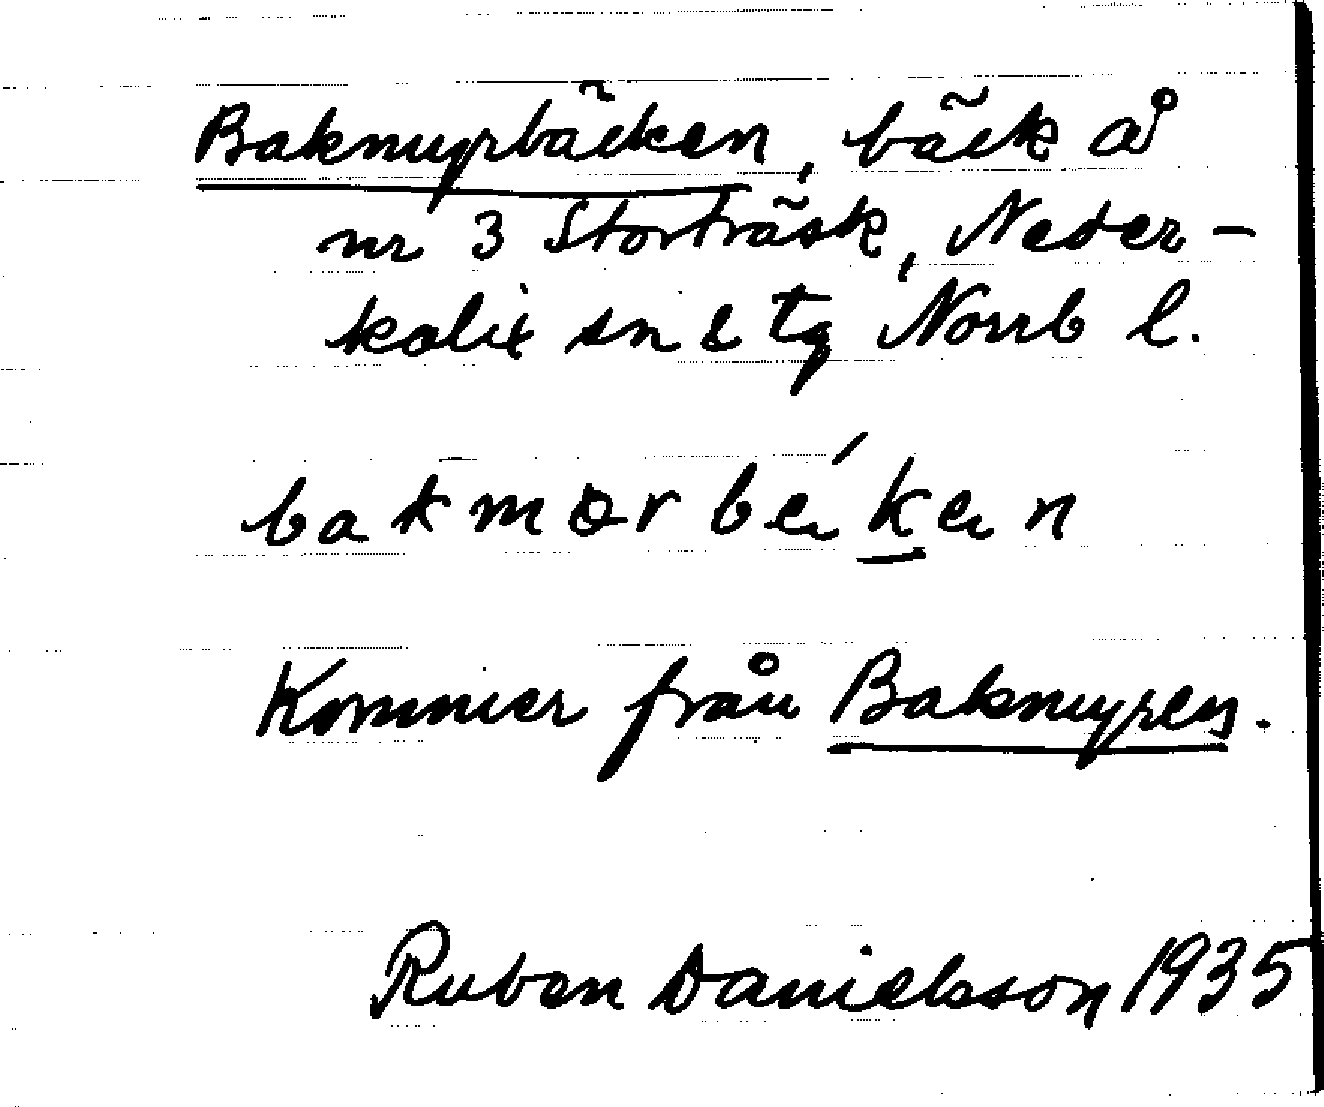 Bakmyrbäcken, bäck å
nr 3 Storträsk, Neder-
kalix sn o tg Norrb l.
Kommer från Bakmyren.
Ruben Danielsson 1935